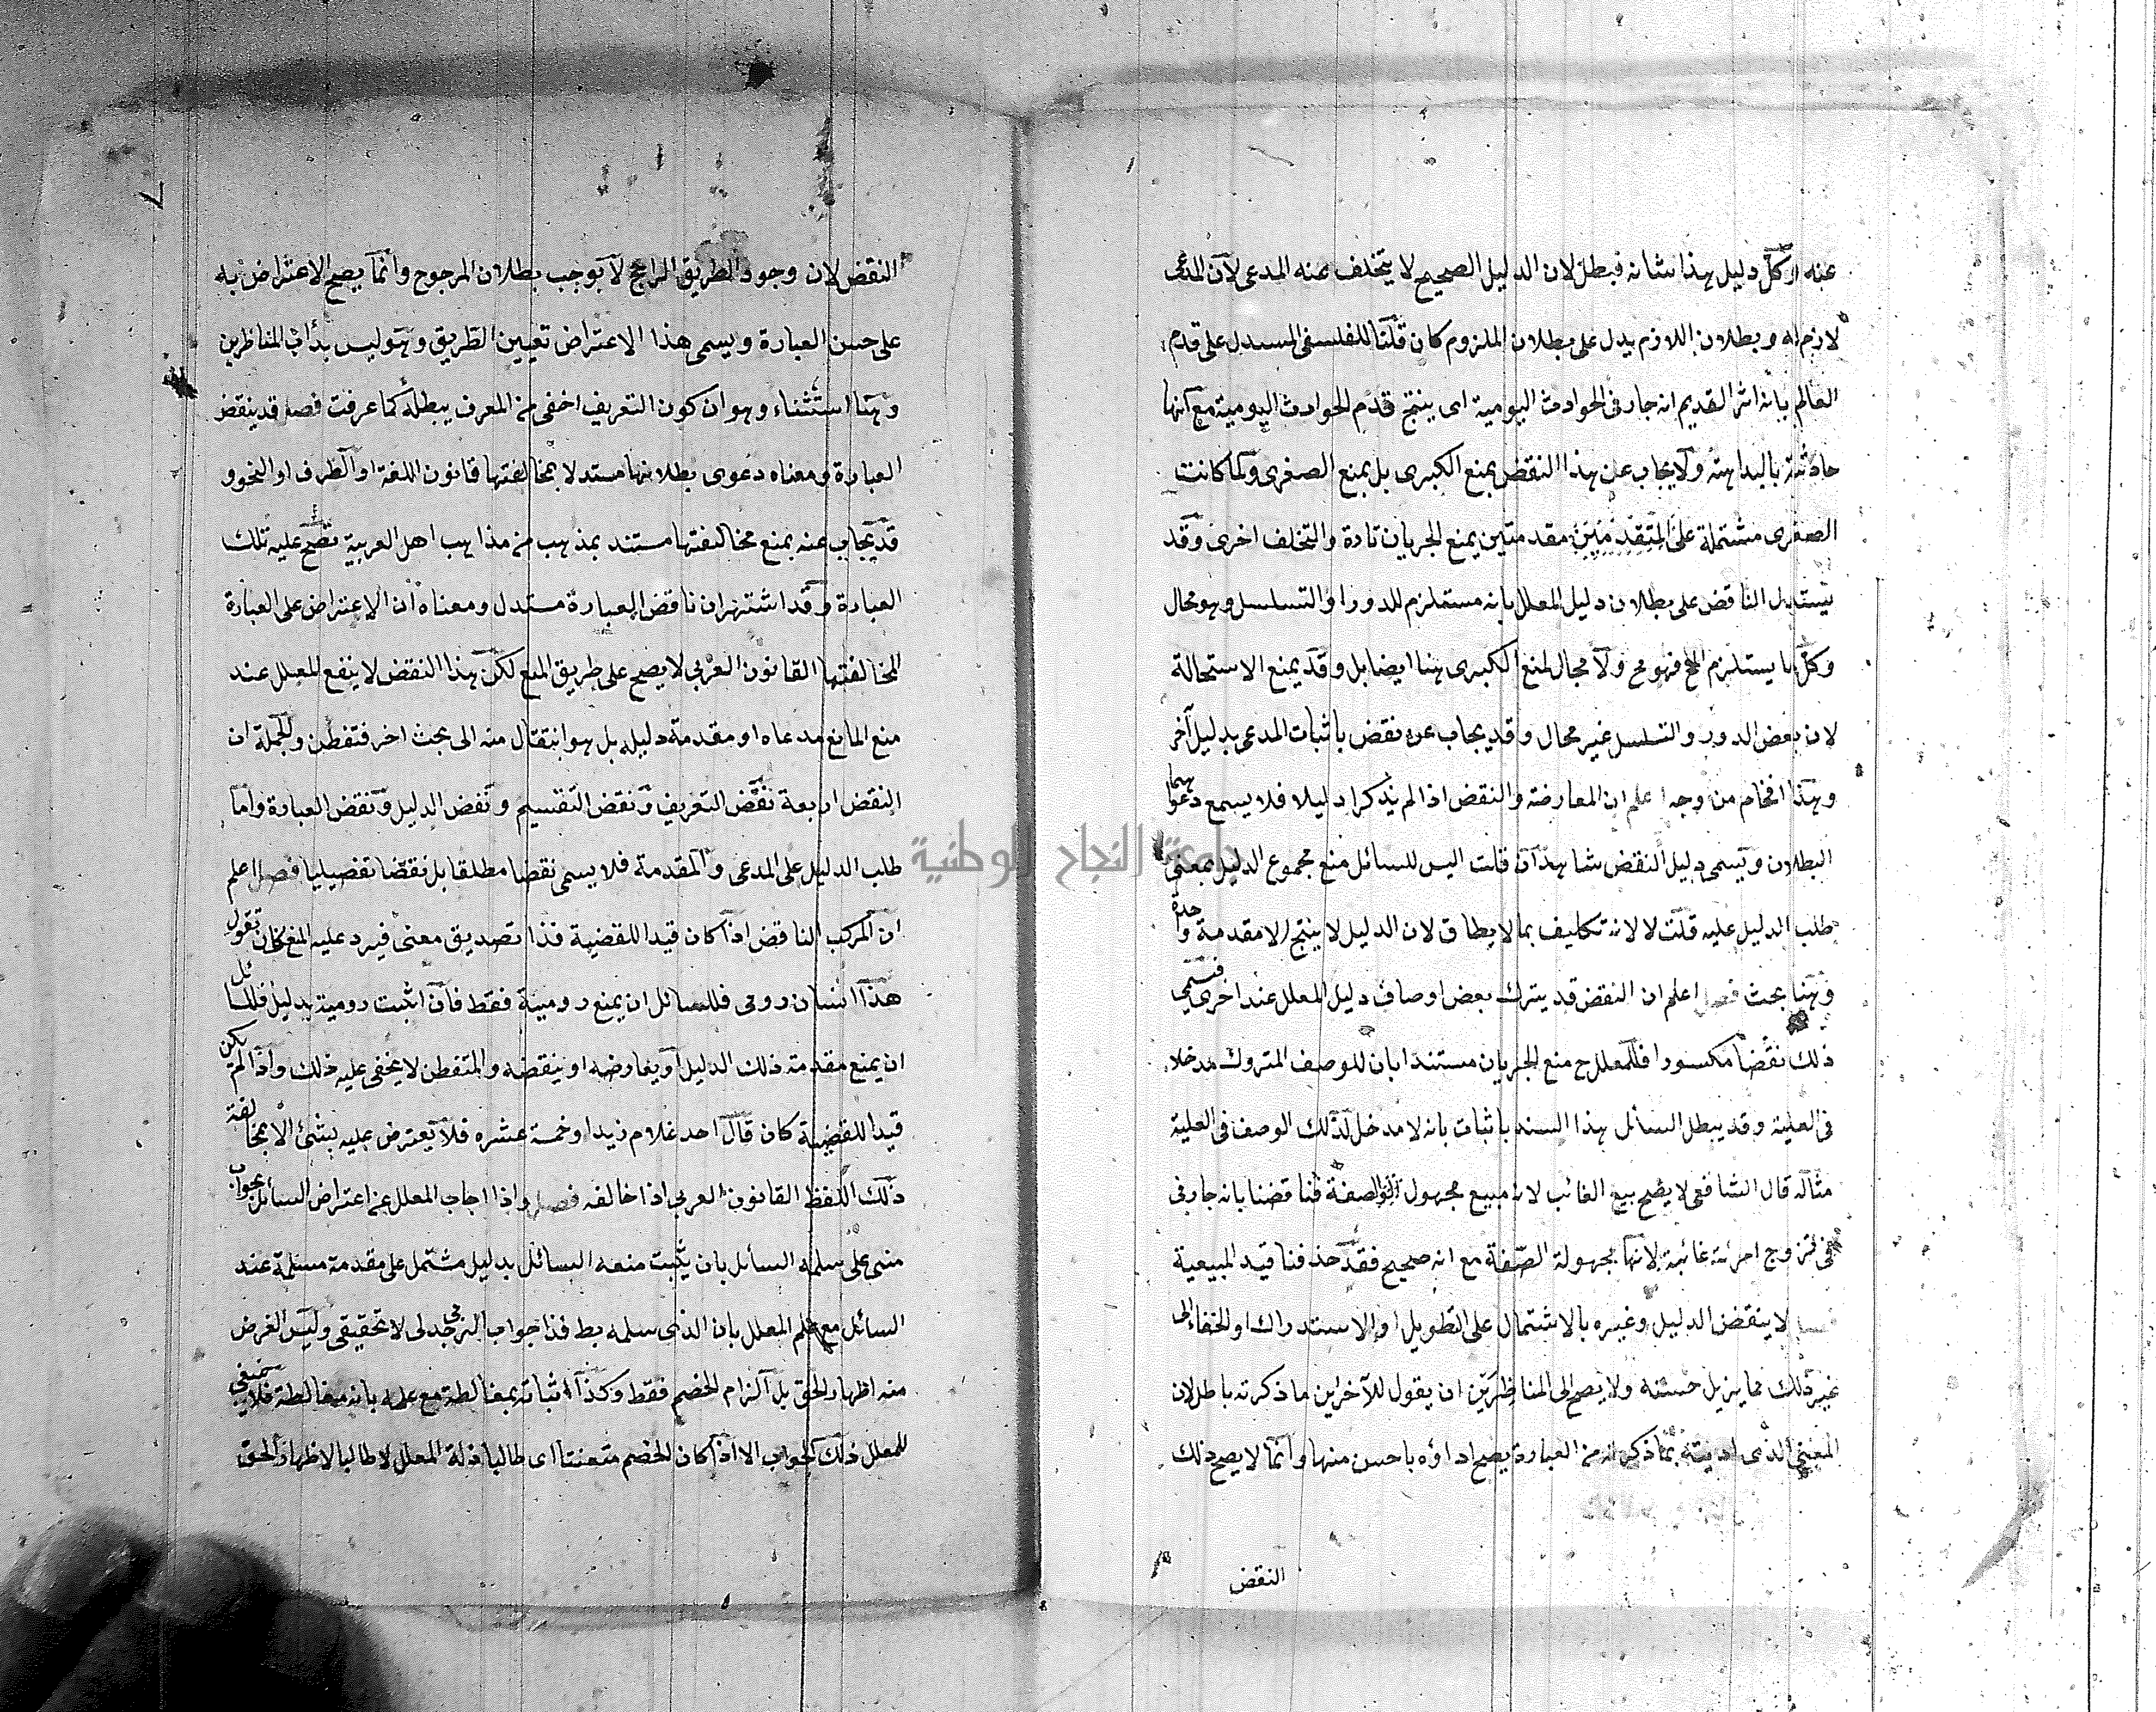 عنه وكل دليل هذا شانه فبطل لان الدليل الصحيح لا يتخلف عنه المدعى لان المدعى
لازم له وبطلان اللازم يدل على بطلان الملزوم كان قلنا للفلسفى المستدل على قدم
العالم بانه اثر القديم انه جار فى الحوادث اليومية اى ينتج قدم الحوادث اليومية مع انها
حادثة بالبداهة ولا يجاب عن هذا النقض بمنع الكبرى بل بمنع الصغرى ولما كانت
الصغرى مشتملة على مقدمتين يمنع الجريان تارة والتخلف اخرى وقد
يستدل الناقض على بطلان دليل المعلل بانه مستلزم للدور او التسلسل وهو محال
وكل ما يستلزم المح فهو مح ولا مجال لمنع الكبرى هنا ايضا بل وقد يمنع الاستحالة
لان بعض الدور والتسلسل غير محال وقد يجاب عن نقض باثبات المدعى بدليل آخر
وهذا افحام من وجه اعلم ان المعارضة والنقض اذا لم يذكرا دليلا فلا يسمع دعواهما
البطلان ويسمى دليل النقض شاهدا ان قلت اليس للسائل منع مجموع الدليل بمعنى
طلب الدليل عليه قلت لا لانه تكليف بما لا يطاق لان الدليل لا ينتج الا مقدمة واحدة
وهنا بحث فصل اعلم ان النقض قد يترك بعض اوصاف دليل المعلل عند اخرى فتسمى
ذلك نقضا مكسورا فللمعلل ح منع الجريان مستندا بان للوصف المتروك مدخلا
فى العلية وقد يبطل السائل هذا السند باثبات بانه لا مدخل لذلك الوصف فى العلية
مثاله قال الشافعى لا يصح بيع الغائب لانه مبيع مجهول الصفة فناقضنا بانه جار فى
فى تزوج امرئة غائبة لانها مجهولة الصفة مع انه صحيح فقد حذفنا قيد المبيعية
فصل لا ينقض الدليل وغيره بالاشتمال على التطويل او الاستدراك او الخفاء الى
غير ذلك مما يزيل حسنه ولا يصح الى المناظرين ان يقول للآخر ان ما ذكرته باطل لان
المعنى الذى اديته بما ذكرته من العبارة يصح اداؤه باحسن منها وانما لا يصح ذلك
النقض
٧
النقض لان وجود الطريق الراجح لا يوجب بطلان المرجوح وانما يصح الاعتراض به
على حسن العبارة ويسمى هذا الاعتراض تعيين الطريق وهو ليس بدأب المناظرين
وهنا استثناء وهو ان كون التعريف اخفى من المعرف يبطله كما عرفت فصل قد ينقض
العبارة ومعناه دعوى بطلانها مستدلا بمخالفتها قانون اللغة او الظرف او النحو و
قد يجاب عنه بمنع مخالفتها مستند بمذهب من مذاهب اهل العربية تصح عليه تلك
العبارة وقد اشتهر ان ناقض العبارة مستدل ومعناه ان الاعتراض على العبارة
لمخالفتها القانون العربي لا يصح على طريق المنع لكن هذا النقض لا ينفع للمعلل عند
منع المانع مدعاه او مقدمة دليله بل هو انتقال منه الى بحث اخر فتفطن والجملة ان
النقض اربعة نقض التعريف ونقض التقسيم ونقض الدليل ونقض العبارة واما
طلب الدليل على المدعى والمقدمة فلا يسمى نقضا مطلقا بل نقضا تفصيليا فصل اعلم
ان المركب الناقض اذا كان قيدا للقضية فذا تصديق معنى فيرد عليه المنع كان تقول
هذا انسان رومى فللسائل ان يمنع روميته فقط فان اثبت روميته بدليل فللسائل
ان يمنع مقدمة ذلك الدليل او يعارضه او ينقضه والمتفطن لا يخفى عليه ذلك واذا لم يكن
قيدا للقضية كان قال احد غلام زيد او خمسة عشره فلا يعترض عليه بشئ الا بمخالفة
ذلك اللفظ القانون العربى اذا خالفه فصل واذا اجاب المعلل عن اعتراض السائل بجواب
مبنى على سلمه السائل بان يثبت منعه السائل بدليل مشتمل على مقدمة مسلمة عند
السائل مع علم المعلل بان الذى سلمه بط فذا جواب الزامى جدلى لا تحقيقى وليس الغرض
منه اظهار الحق بل الزام الخصم فقط وكذا اثباته بمغالطة مع علمه بانه مغالطة فلا ينبغى
للمعلل ذلك الجواب الا اذا كان الخصم متعنتا اى طالبا ذلة المعلل لا طالبا لاظهار الحق
جامعة النجاح الوطنية